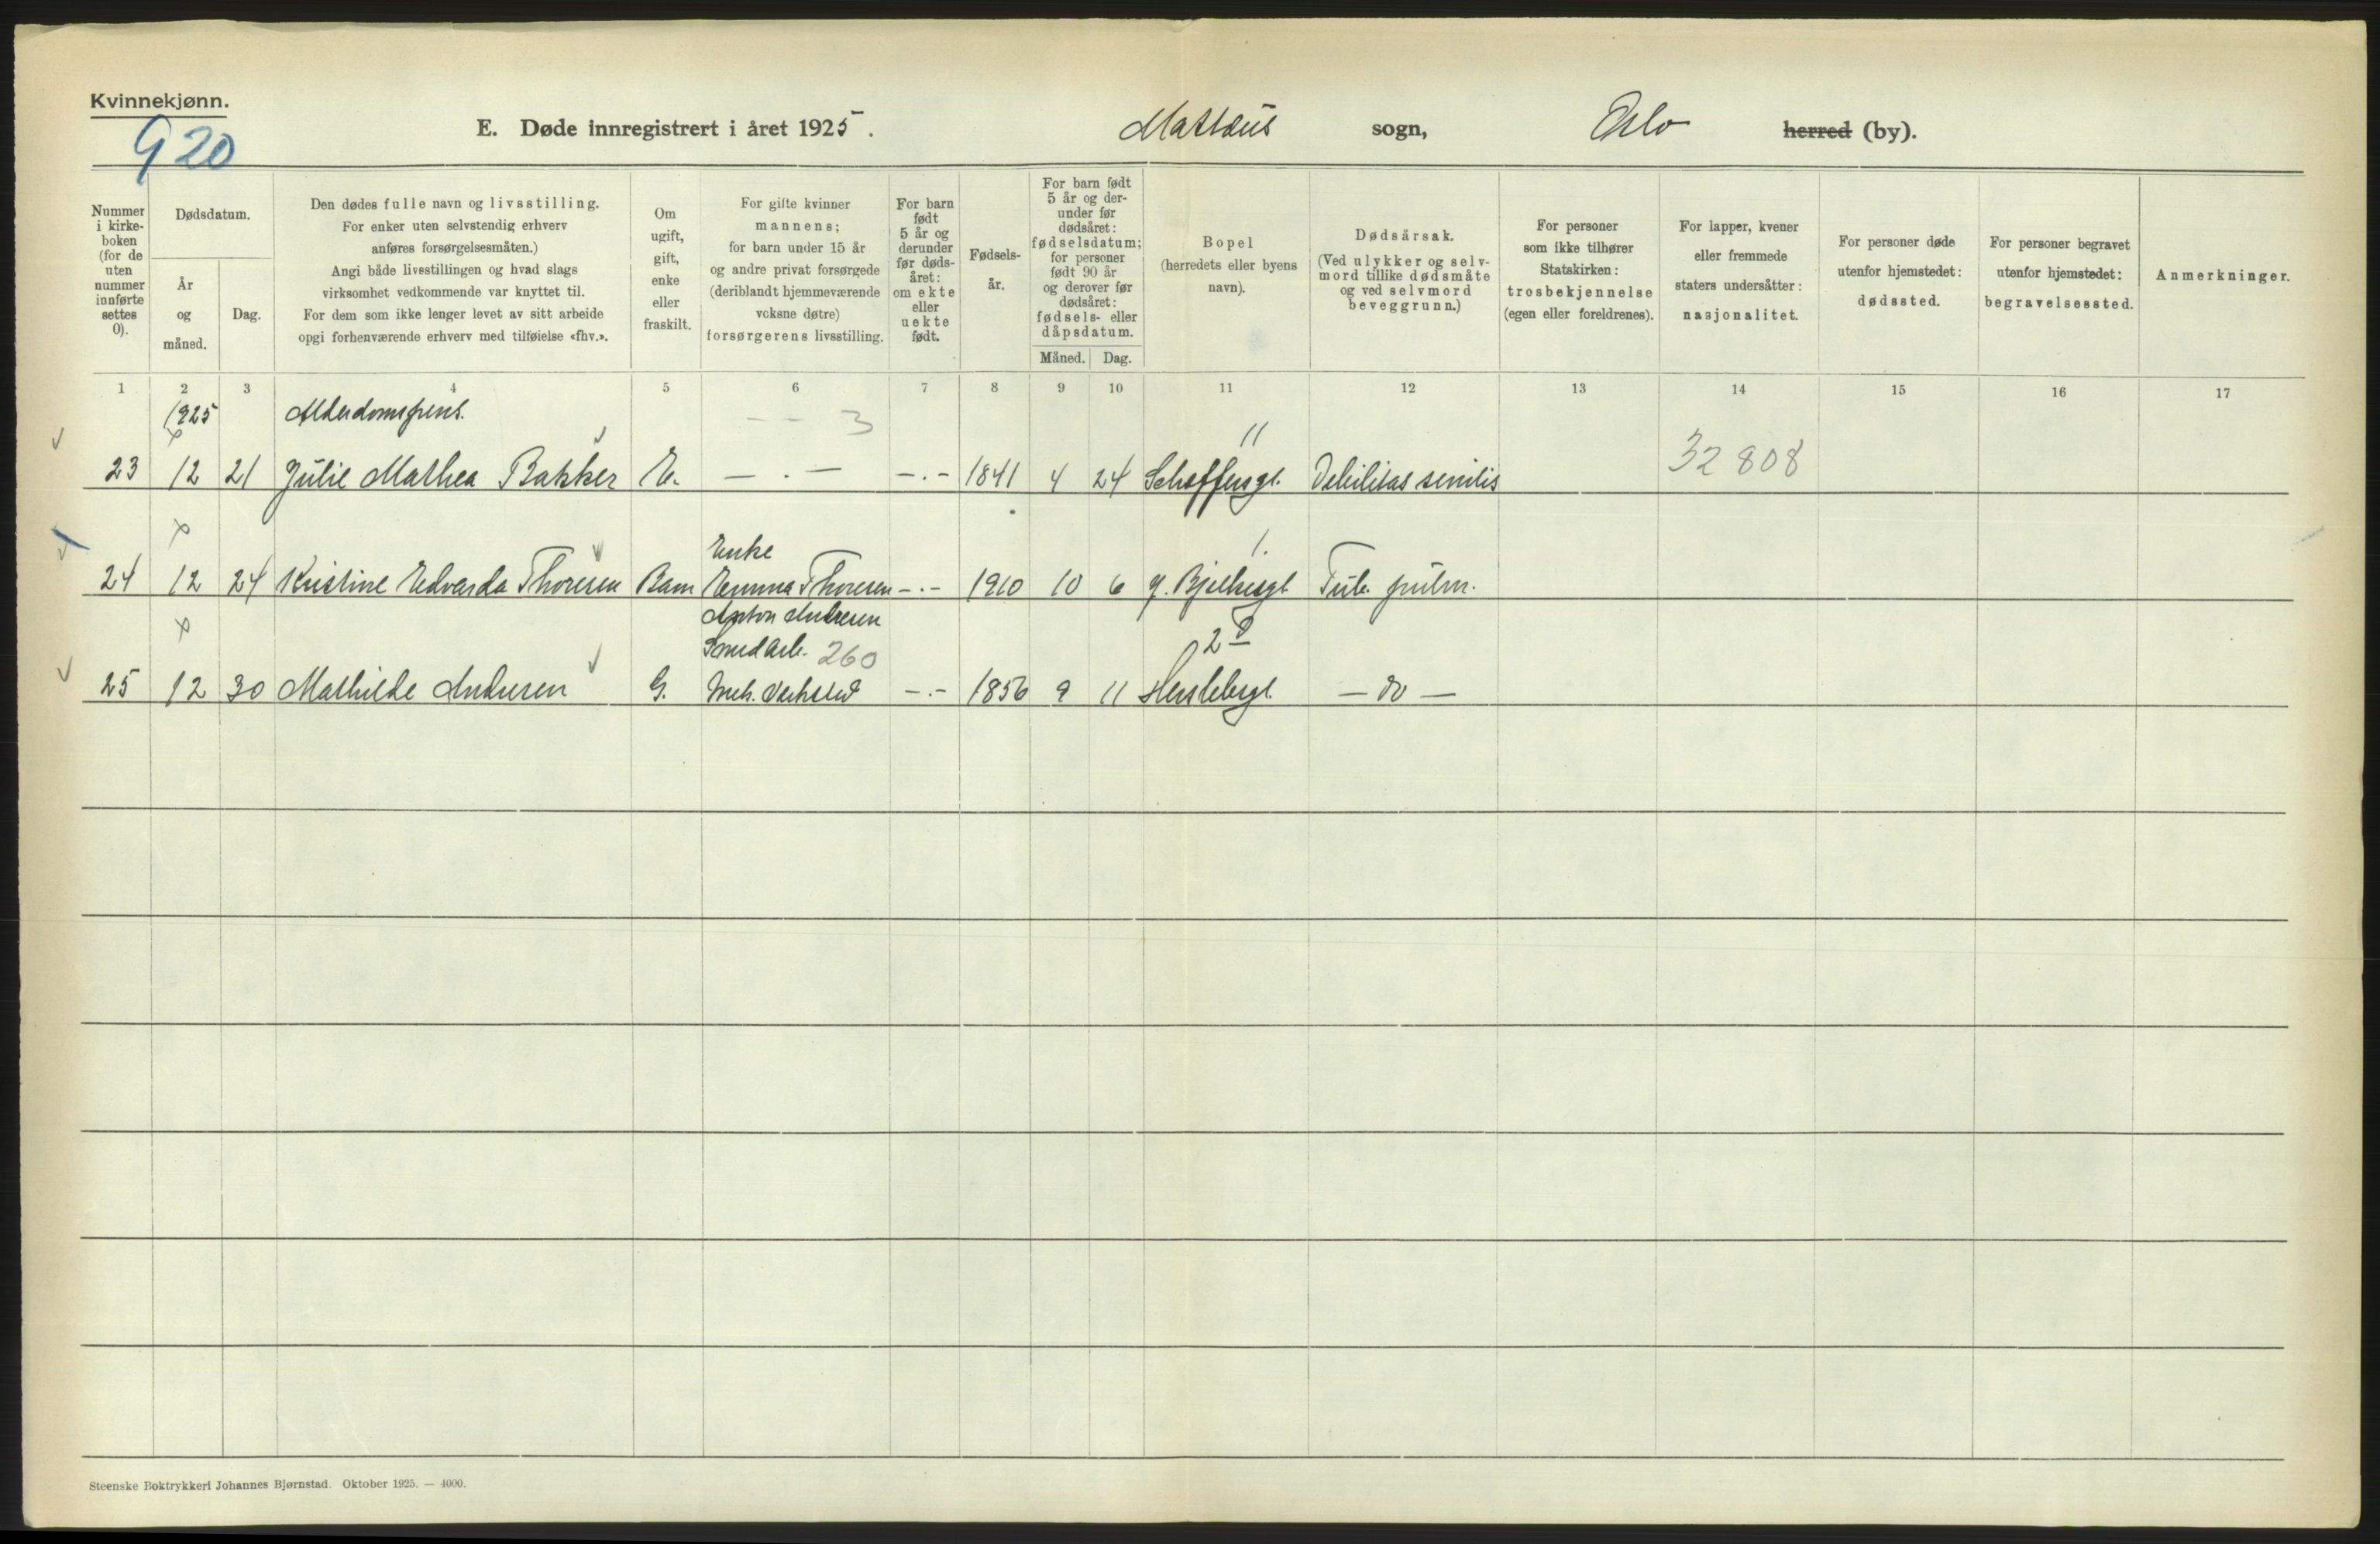 Kvinnekjønn.
920
E. Døde innregistrert i året 1925. Mattæus sogn, Oslo herred (by).
Nummer i kirke-boken (for de uten nummer innførte settes 0).
Dødsdatum.
År og måned.
Dag.
Den dødes fulle navn og livsstilling.
For enker uten selvstendig erhverv
anføres forsørgelsesmåten.)
Angi både livsstillingen og hvad slags
virksomhet vedkommende var knyttet til.
For dem som ikke lenger levet av sitt arbeide
opgi forhenværende erhverv med tilføielse «fhv.».
Om ugift, gift, enke eller fraskilt.
For gifte kvinner
mannens;
for barn under 15 år
og andre privat forsørgede
(deriblandt hjemmeværende
voksne døtre)
forsørgerens livsstilling.
For barn født 5 år og derunder før døds-året: om ekte eller uekte født.
Fødsels-år.
For barn født
5 år og der-
under før
dødsåret:
fødselsdatum;
for personer
født 90 år
og derover før
dødsåret:
fødsels- eller
dåpsdatum.
Måned. Dag.
Bopel
(herredets eller byens
navn).
Dødsårsak.
(Ved ulykker og selv-
mord tillike dødsmåte
og ved selvmord
beveggrunn.)
For personer
som ikke tilhører
Statskirken:
trosbekjennelse
(egen eller foreldrenes).
For lapper, kvener
eller fremmede
staters undersåtter:
nasjonalitet.
For personer døde
utenfor hjemstedet:
dødssted.
For personer begravet
utenfor hjemstedet:
begravelsessted.
Anmerkninger.
1 2 3 4 5 6 7 8 9 10 11 12 13 14 15 16 17
1925 Alderdomspens. — — 3
11
23 12 21 Julie Mathea Bakker E. — . — — . — 1841 4 24 Schøffensgt. Debilitas senilis 32808
Enke 1.
24 12 24 Kristine Edvarda Thoresen Barn Emma Thoresen — . — 1910 10 6 J. Bjelkesgt. Tub. pulm.
Anton Andresen
Smedarb. 260 2 D
25 12 30 Mathilde Andresen G. Mek. Verksted — . — 1856 9 11 Herslebsgt. — do —
Steenske Boktrykkeri Johannes Bjørnstad. Oktober 1925. — 4000.